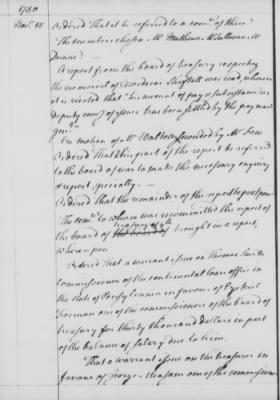 1780
Nov. 18
Ordered That it be referred to a com.ee of three
The members chosen Mr. Mathews Mr. Sullivan Mr.
Duane
A report from the board of treasury respecting
the memorial of Mordecai was read, wherein
it is stated that his account of pay & subsistence as
deputy com.y of issues has been settled by the pay mast.
gen.l
On motion of Mr. Walton seconded by Mr. Few
Ordered That this part of the report be referred
to the board of war to make the necessary enquiry
& report specially.
Ordered that the remainder of the report be postponed
The com.ee to whom was recommitted the report of
the board of treasury of 9th brought in a report,
whereupon
Ordered that a warrant issue on Thomas Smith
commissioner of the continental loan office in
the state of Pensylvania in favour of Ezekiel
Forman one of the commissioners of the board of
treasury for thirty thousand dollars in part
of the balance of salary due to him.
That a warrant issue on the treasurer in
favour of George one of the commissioners